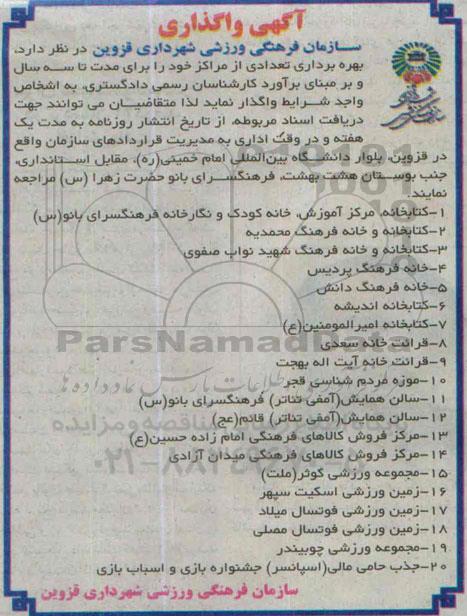 آگهی واگذاری
سازمان فرهنگی ورزشی شهرداری قزوین در نظر دارد،
بهره برداری تعدادی از مراکز خود را برای مدت تا سه سال
و بر مبنای برآورد کارشناسان رسمی دادگستری، به اشخاص
واجد شرایط واگذار نماید لذا متقاضیان می توانند جهت
دریافت اسناد مربوطه، از تاریخ انتشار روزنامه به مدت یک
هفته و در وقت اداری به مدیریت قراردادهای سازمان واقع
در قزوین، بلوار دانشگاه بین‌المللی امام خمینی(ره)، مقابل استانداری،
جنب بوستان هشت بهشت، فرهنگسرای بانو حضرت زهرا (س) مراجعه
نمایند.
۱-کتابخانه، مرکز آموزش، خانه کودک و نگارخانه فرهنگسرای بانو(س)
۲-کتابخانه و خانه فرهنگ محمدیه
۳-کتابخانه و خانه فرهنگ شهید نواب صفوی
۴-خانه فرهنگ پردیس
۵-خانه فرهنگ دانش
۶-کتابخانه اندیشه
۷-کتابخانه امیرالمومنین(ع)
۸-قرائت خانه سعدی
۹-قرائت خانه آیت اله بهجت
۱۰-موزه مردم شناسی قجر
۱۱-سالن همایش(آمفی تئاتر) فرهنگسرای بانو(س)
۱۲-سالن همایش(آمفی تئاتر) قائم(عج)
۱۳-مرکز فروش کالاهای فرهنگی امام زاده حسین(ع)
۱۴-مرکز فروش کالاهای فرهنگی میدان آزادی
۱۵-مجموعه ورزشی کوثر(ملت)
۱۶-زمین ورزشی اسکیت سپهر
۱۷-زمین ورزشی فوتسال میلاد
۱۸-زمین ورزشی فوتسال مصلی
۱۹-مجموعه ورزشی چوبیندر
۲۰-جذب حامی مالی(اسپانسر) جشنواره بازی و اسباب بازی
سازمان فرهنگی ورزشی شهرداری قزوین
ParsNamad